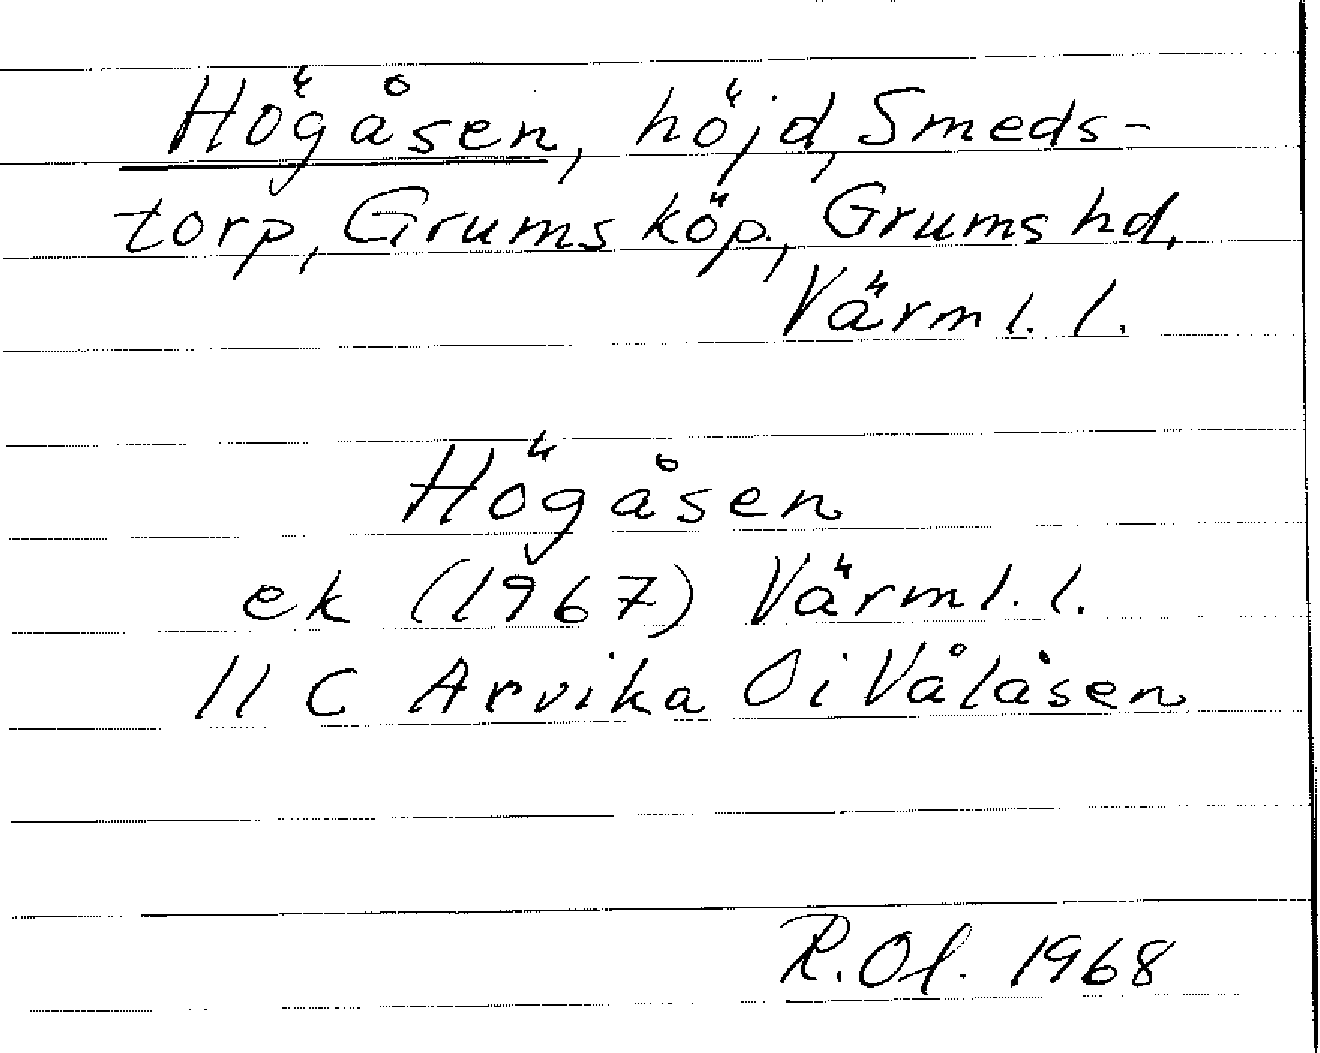 Högåsen, höjd, Smeds-
torp, Grums köp., Grums hd,
Värml. l.
Högåsen
ek (1967) Värml. l.
11 C Arvika Oi Vålåsen
R.Ol. 1968